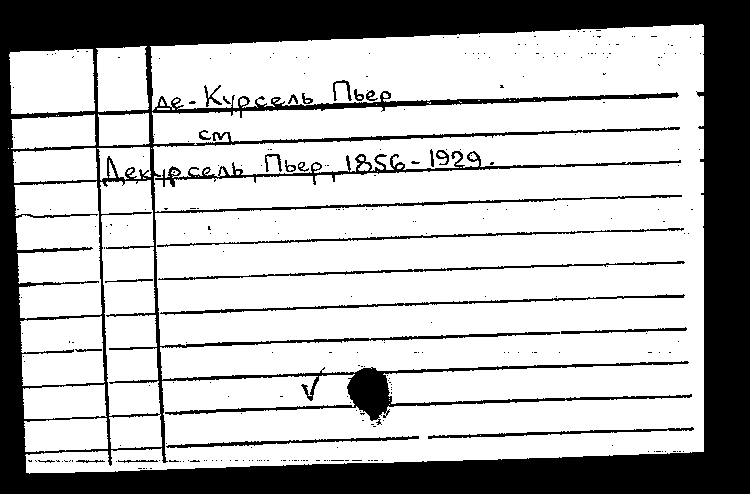 де-Курсель, Пьер
см
Декурсель, Пьер, 1856-1929.